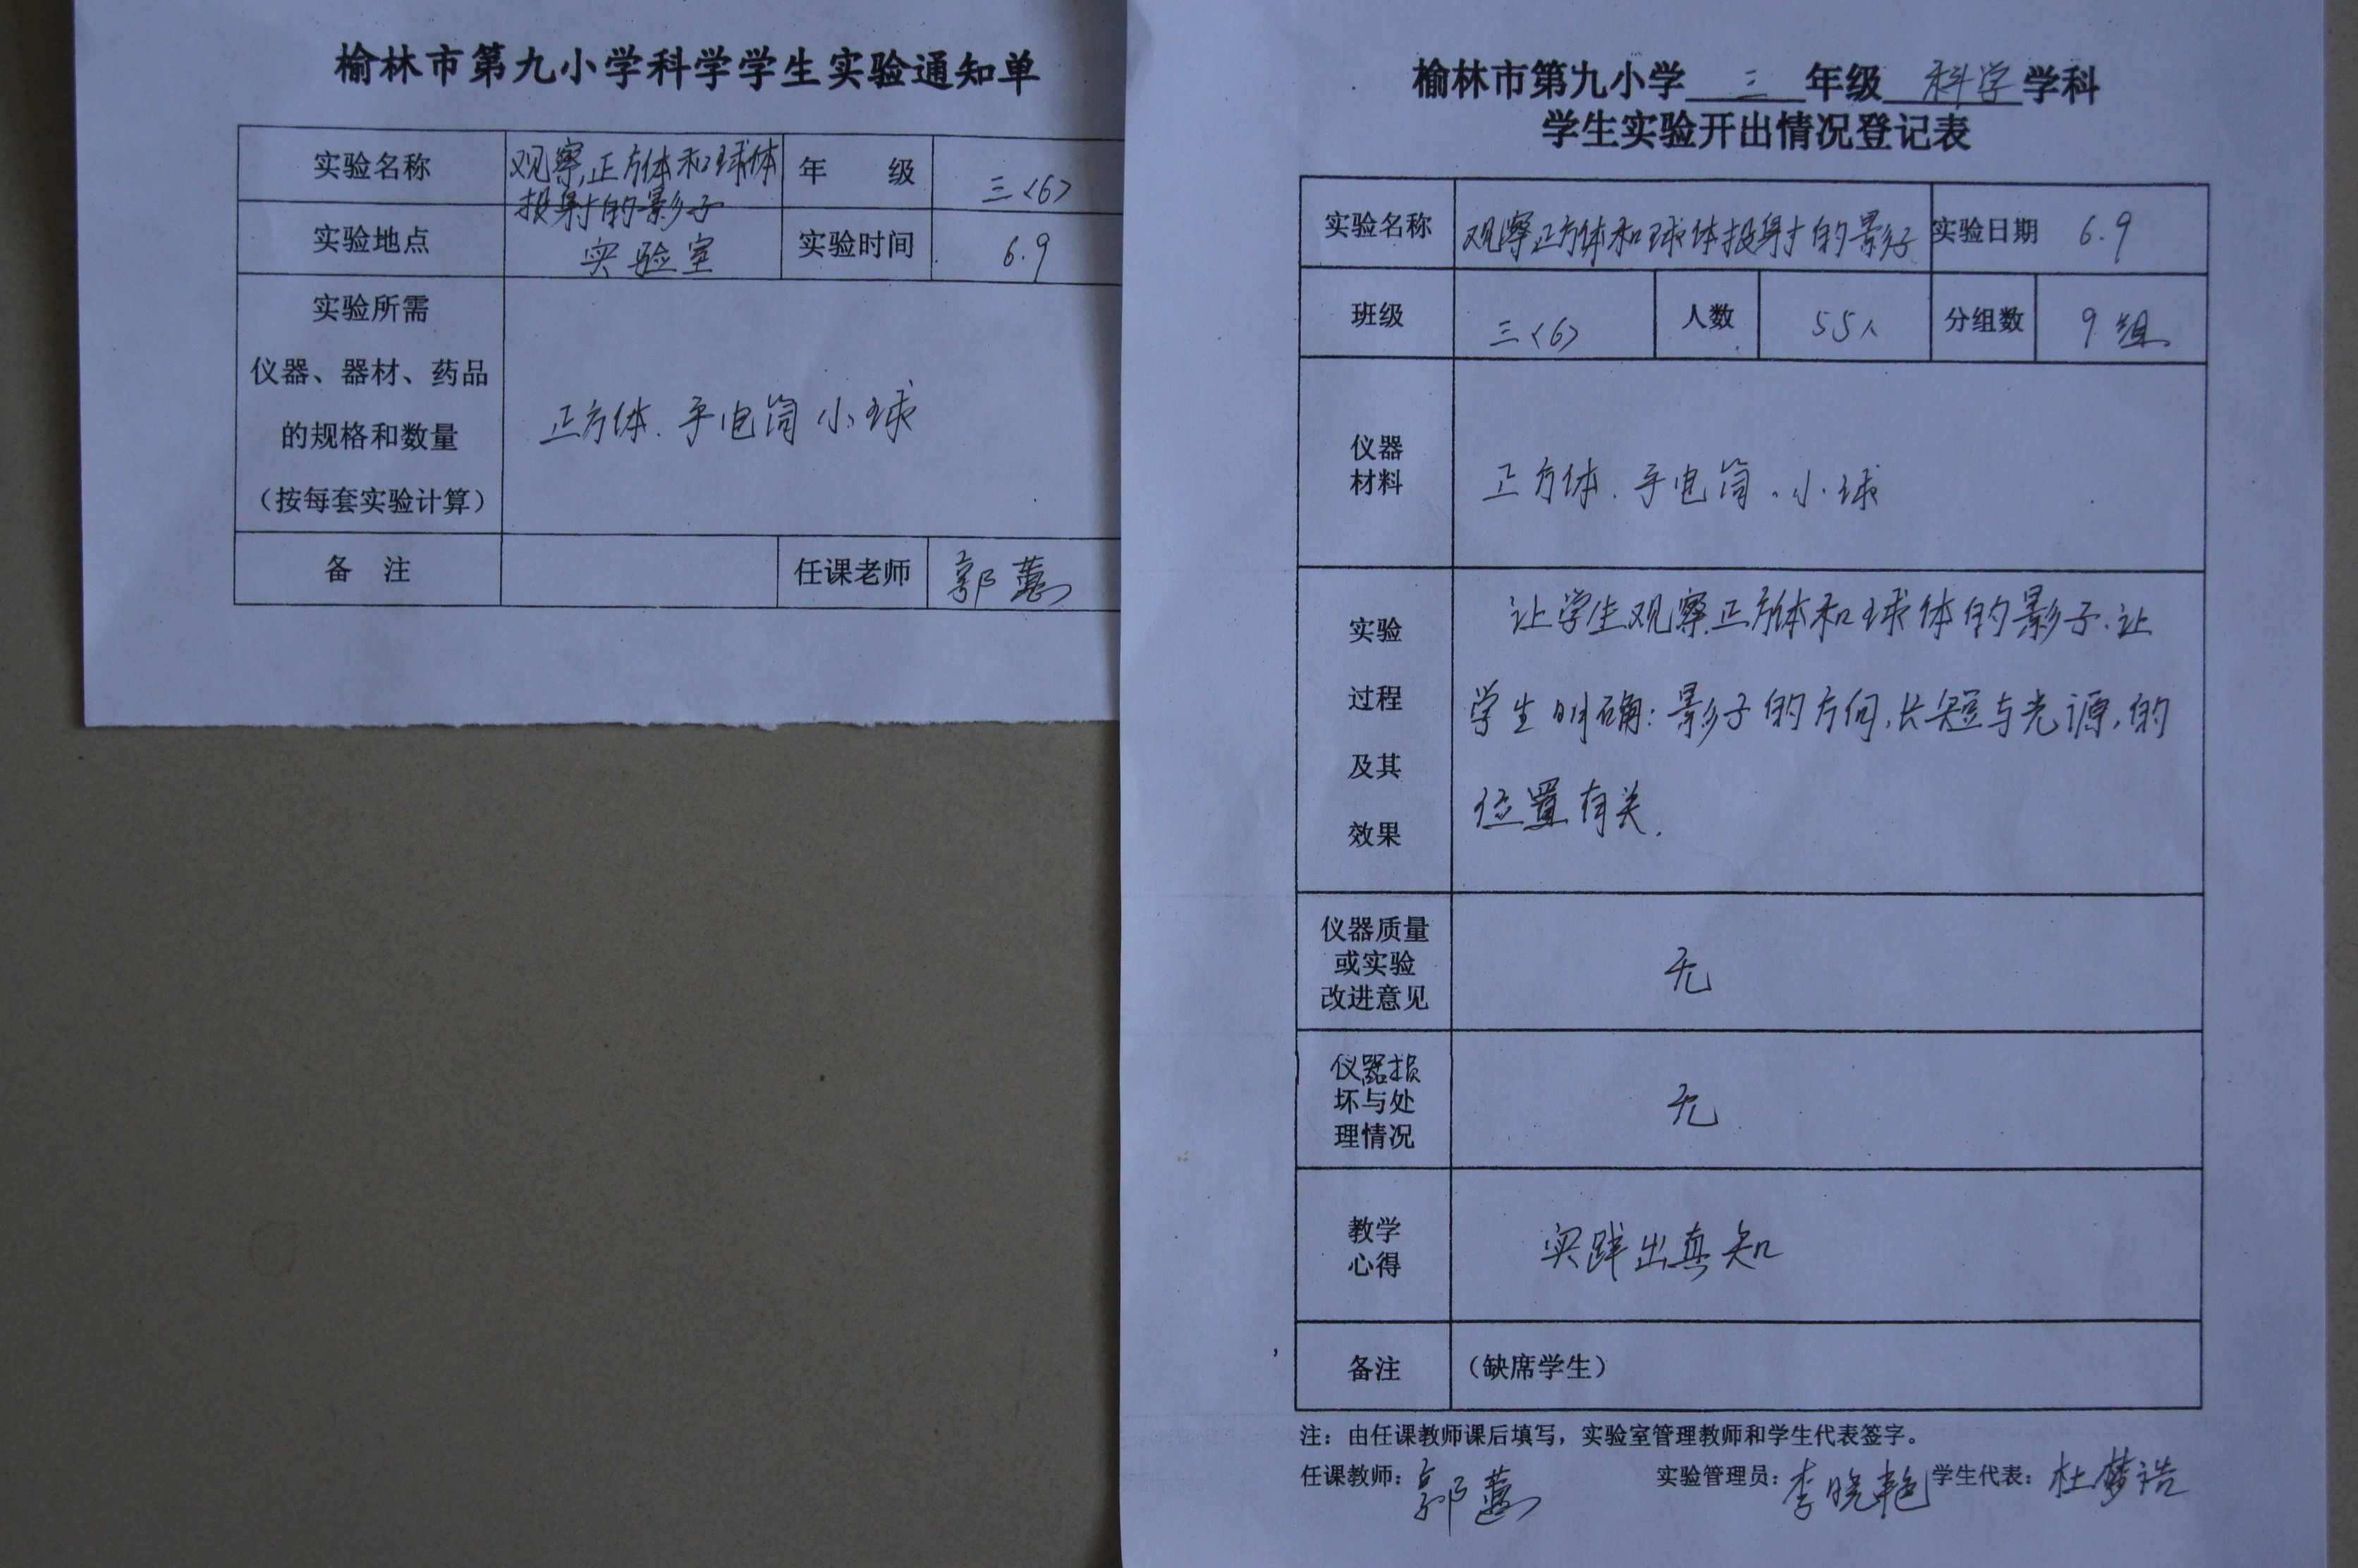 榆林市第九小学科学学生实验通知单
实验名称 观察正方体和球体 年 级 三<6>
投射的影子
实验地点 实验室 实验时间 6.9
实验所需
仪器、器材、药品
的规格和数量
（按每套实验计算）
正方体、手电筒 小球
备 注 任课老师 郭蕙
榆林市第九小学 三 年级 科学 学科
学生实验开出情况登记表
实验名称 观察正方体和球体投射的影子 实验日期 6.9
班级 三<6> 人数 55人 分组数 9组
仪器
材料
正方体、手电筒、小球
实验
过程
及其
效果
让学生观察正方体和球体的影子.让
学生明确:影子的方向,长短与光源,的
位置有关.
仪器质量
或实验
改进意见
无
仪器损
坏与处
理情况
无
教学
心得
实践出真知
备注 （缺席学生）
注：由任课教师课后填写，实验室管理教师和学生代表签字。
任课教师：郭蕙 实验管理员：李晓艳 学生代表：杜梦浩